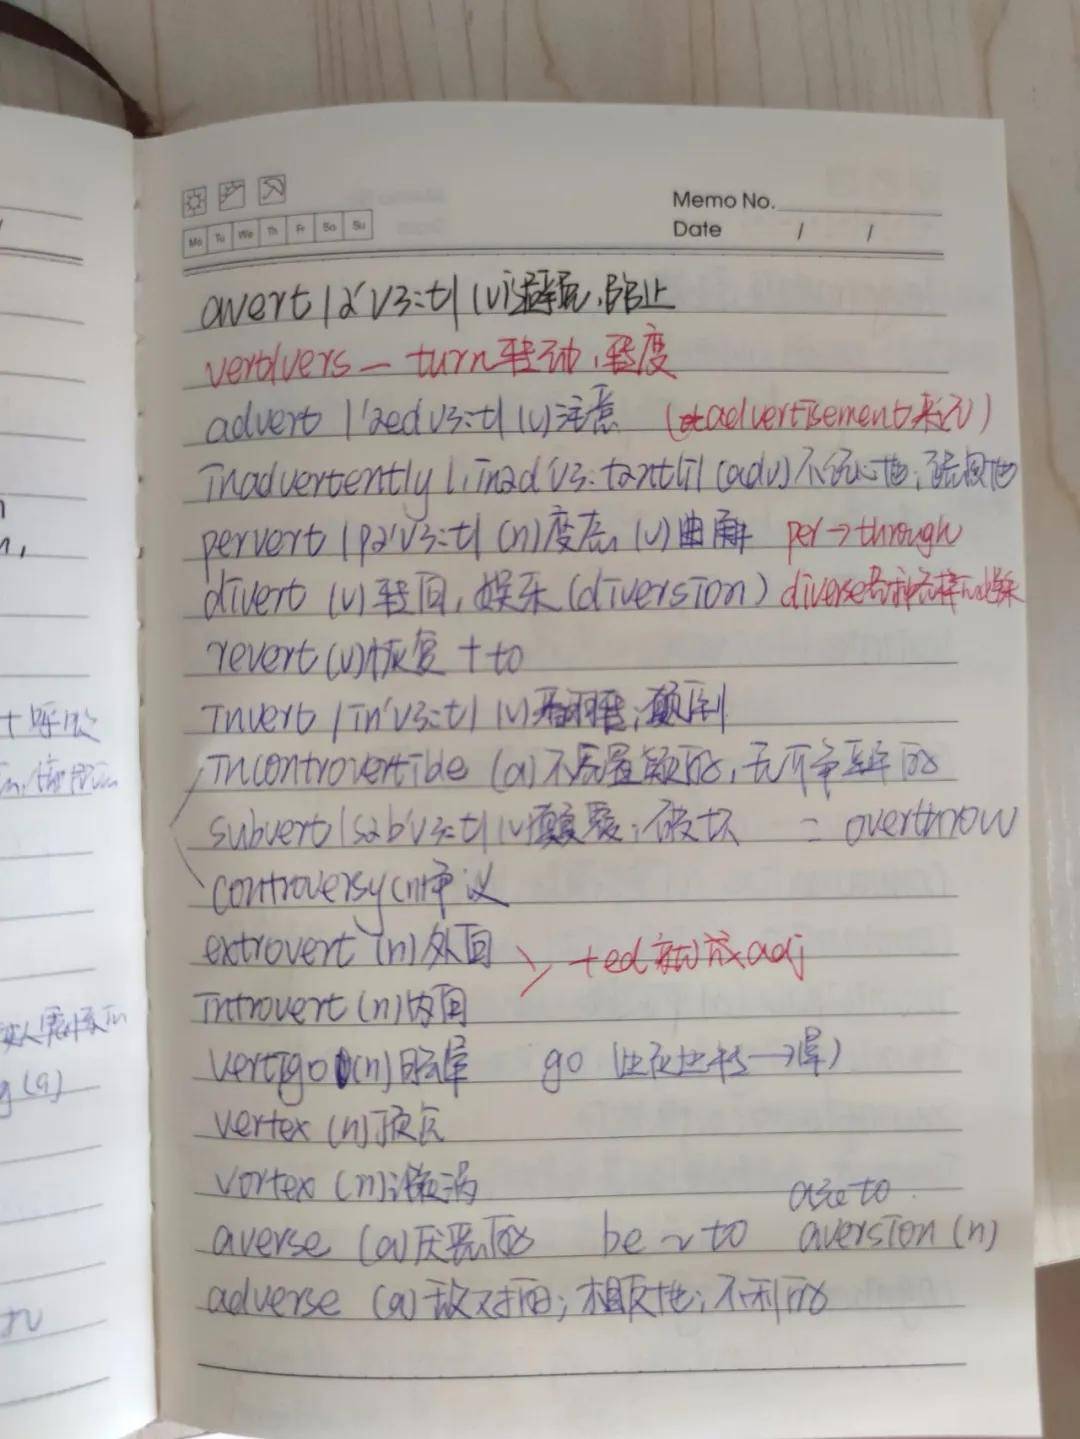 Memo No.
Mo Tu We Th Fr Sa Su
Date / /
avert |ə'vɜ:t| (v)避免,阻止
vert/vers — turn 转动,转变
advert |'æedvɜ:t| (v)注意 (advertisement来记)
inadvertently |,inəd'vɜ:təntli| (adv)不经心地;
pervert |pə'vɜ:t| (n)变态 (v)曲解 per→through
divert (v)转向,娱乐(diversion) diverse各种各样娱乐
revert (v)恢复 + to
invert |in'vɜ:t| (v)翻转;颠倒
incontrovertible (a)不容置疑的,无可争辩的
subvert |səb'vɜ:t| (v)颠覆;破坏 = overthrow
controversy (n)争议
extrovert (n)外向 +ed就成adj
introvert (n)内向
vertigo (n)眩晕 go (走in走转→晕)
vertex (n)顶点
vortex (n)漩涡
averse (a)厌恶的 be ~ to aversion (n)
adverse (a)敌对的;相反地;不利的